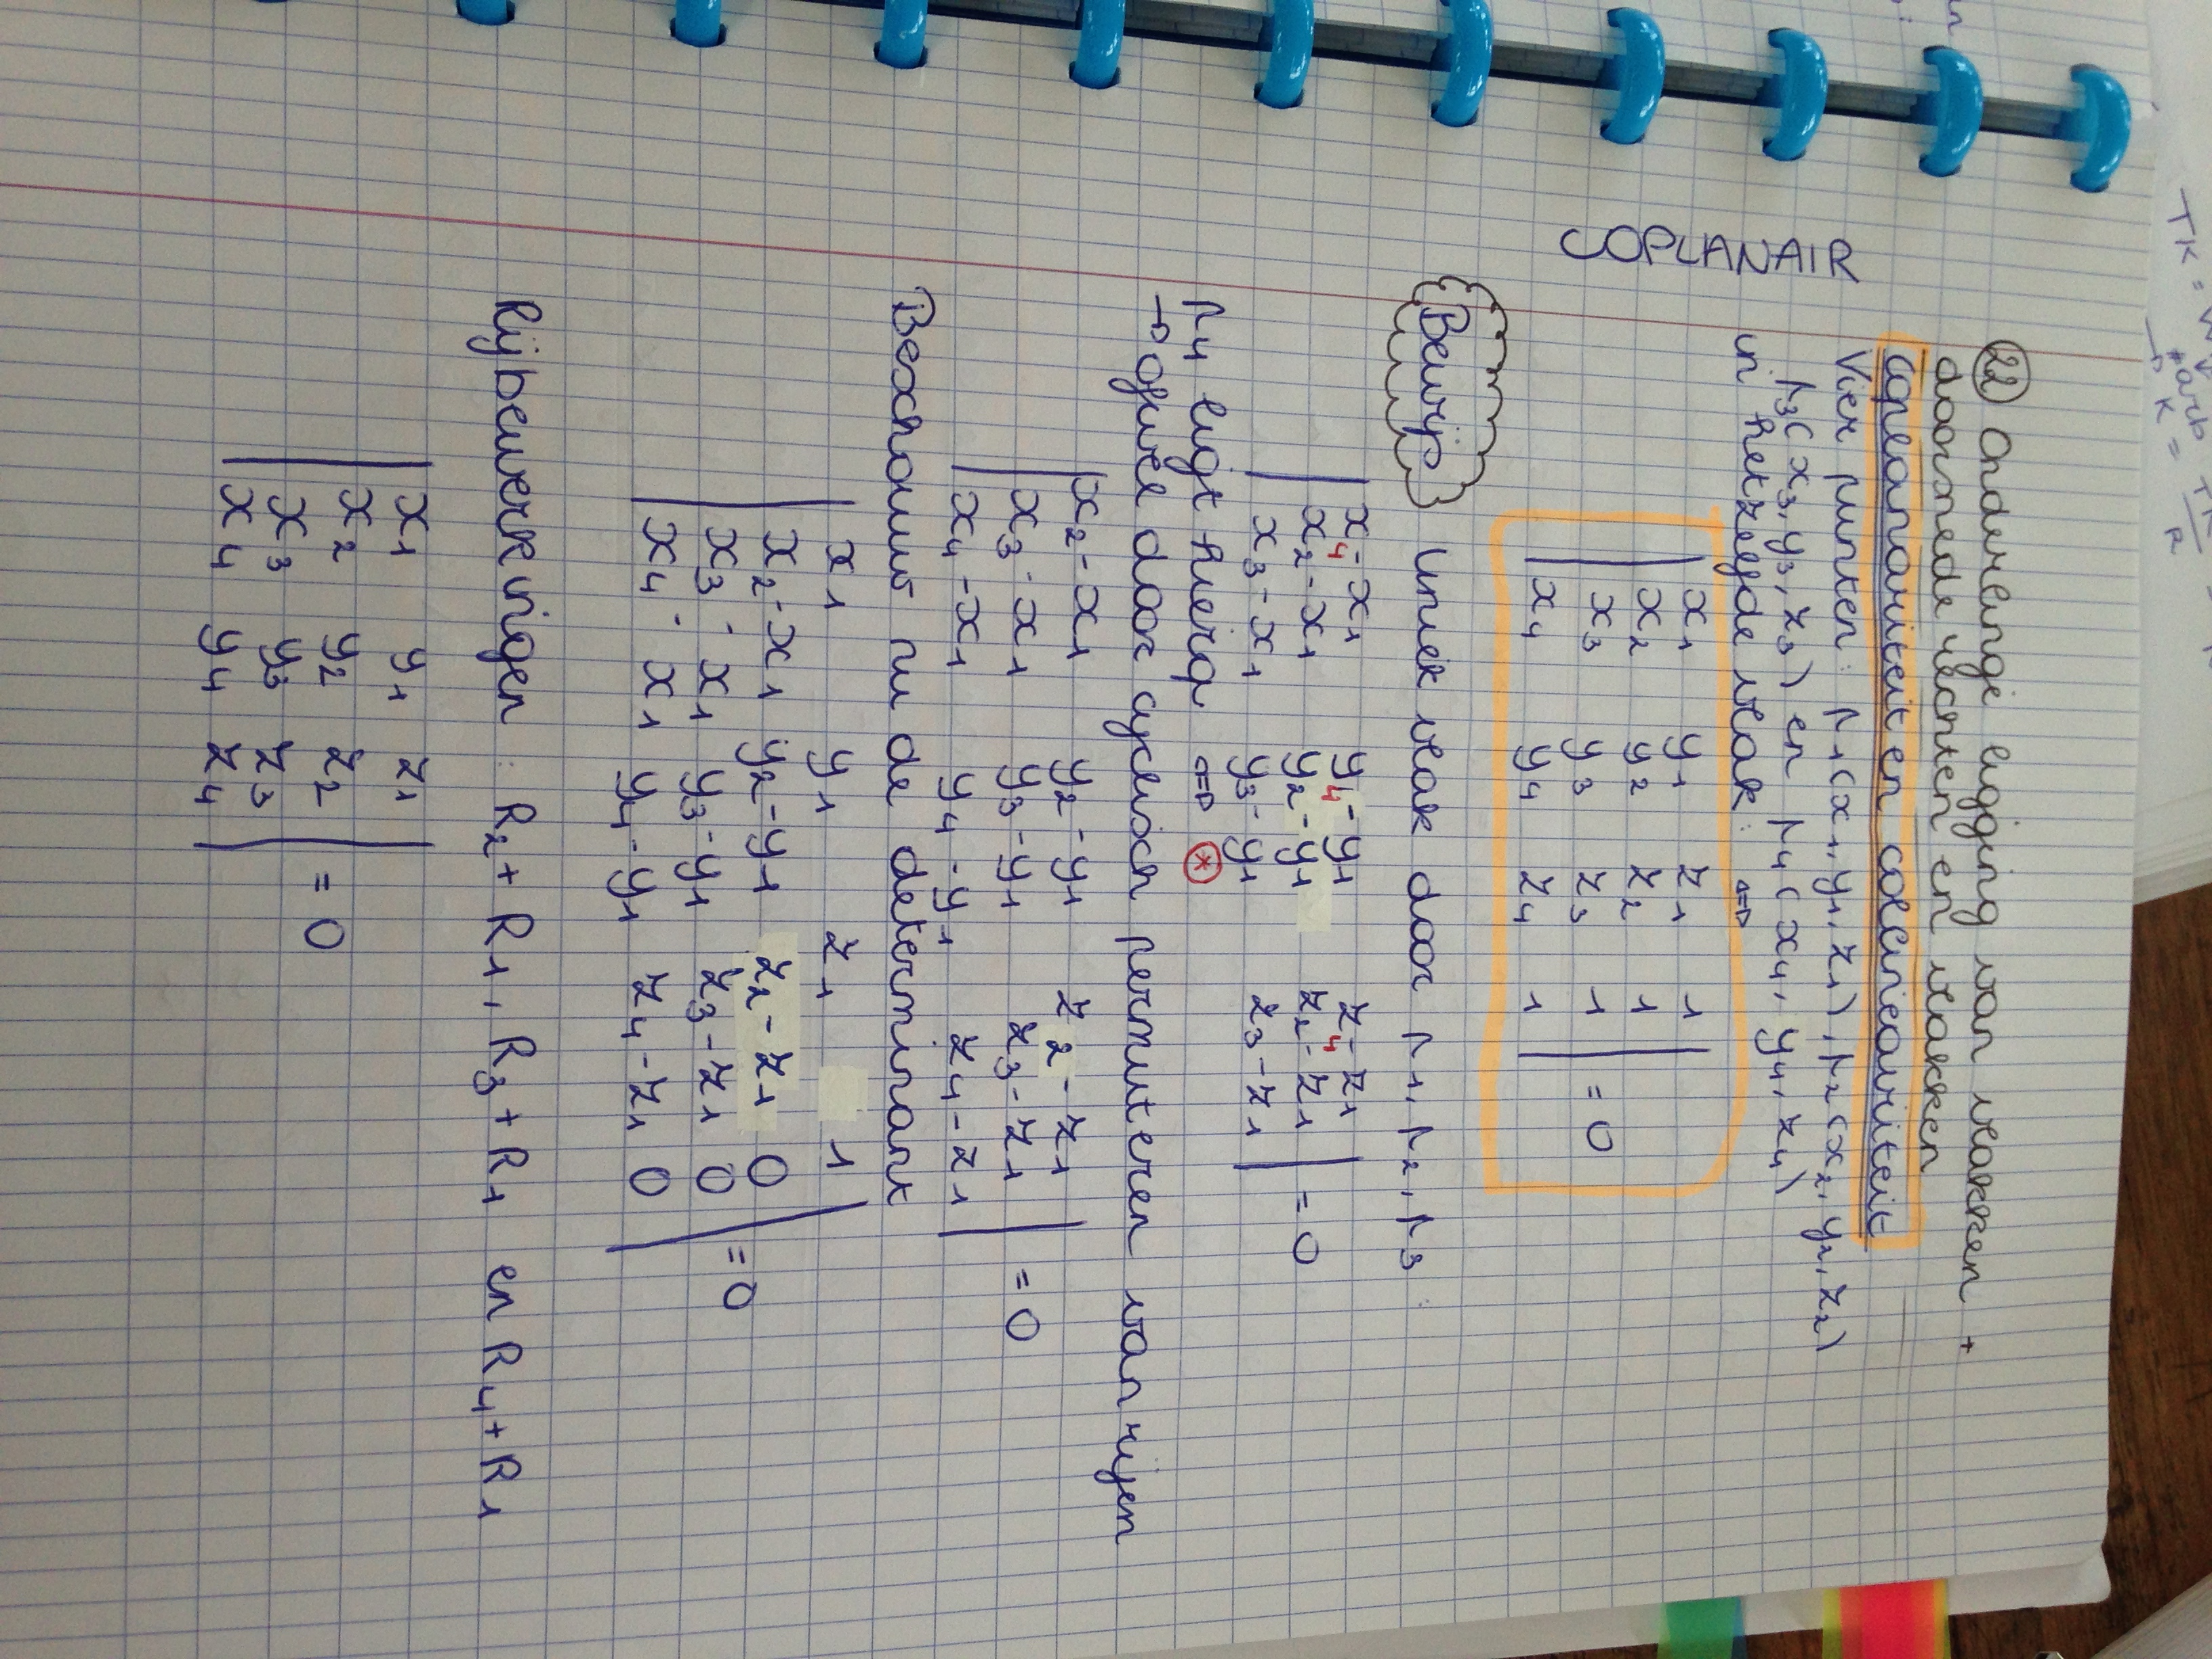 22 Onderlinge ligging van vlakken +
doorsnede rechten en vlakken
coplanariteit en collineariteit
COPLANAIR
Vier punten: P1(x1, y1, z1), P2(x2, y2, z2)
P3(x3, y3, z3) en P4(x4, y4, z4)
in hetzelfde vlak: <=>
| x1 y1 z1 1 |
| x2 y2 z2 1 |
| x3 y3 z3 1 | = 0
| x4 y4 z4 1 |
Bewijs Uniek vlak door P1, P2, P3:
| x4-x1 y4-y1 z4-z1 |
| x2-x1 y2-y1 z2-z1 | = 0
| x3-x1 y3-y1 z3-z1 |
P4 ligt hierop <=> *
→ ofwel door cyclisch permuteren van rijen
| x2-x1 y2-y1 z2-z1 |
| x3-x1 y3-y1 z3-z1 | = 0
| x4-x1 y4-y1 z4-z1 |
Beschouw nu de determinant
| x1 y1 z1 1 |
| x2-x1 y2-y1 z2-z1 0 |
| x3-x1 y3-y1 z3-z1 0 | = 0
| x4-x1 y4-y1 z4-z1 0 |
Rijbewerkingen: R2+R1, R3+R1 en R4+R1
| x1 y1 z1 |
| x2 y2 z2 | = 0
| x3 y3 z3 |
| x4 y4 z4 |